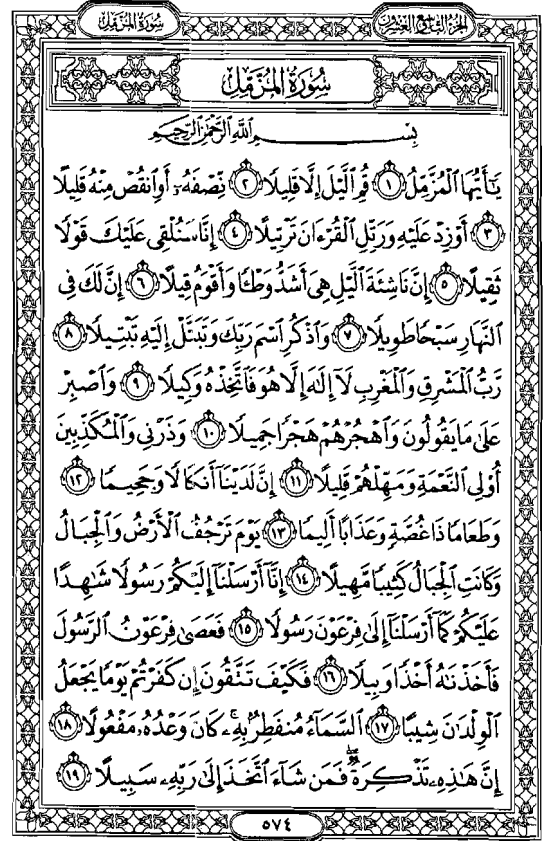 سُورَةُ المُزَّمِّل
الجُزءُ التَّاسِعُ وَالعِشْرُونَ
سُورَةُ المُزَّمِّل
بِسْمِ اللَّهِ الرَّحْمَٰنِ الرَّحِيمِ
يَٰٓأَيُّهَا ٱلْمُزَّمِّلُ ١ قُمِ ٱلَّيْلَ إِلَّا قَلِيلًا ٢ نِّصْفَهُۥٓ أَوِ ٱنقُصْ مِنْهُ قَلِيلًا
٣ أَوْ زِدْ عَلَيْهِ وَرَتِّلِ ٱلْقُرْءَانَ تَرْتِيلًا ٤ إِنَّا سَنُلْقِى عَلَيْكَ قَوْلًا
ثَقِيلًا ٥ إِنَّ نَاشِئَةَ ٱلَّيْلِ هِىَ أَشَدُّ وَطْـًٔا وَأَقْوَمُ قِيلًا ٦ إِنَّ لَكَ فِى
ٱلنَّهَارِ سَبْحًا طَوِيلًا ٧ وَٱذْكُرِ ٱسْمَ رَبِّكَ وَتَبَتَّلْ إِلَيْهِ تَبْتِيلًا ٨
رَّبُّ ٱلْمَشْرِقِ وَٱلْمَغْرِبِ لَآ إِلَٰهَ إِلَّا هُوَ فَٱتَّخِذْهُ وَكِيلًا ٩ وَٱصْبِرْ
عَلَىٰ مَا يَقُولُونَ وَٱهْجُرْهُمْ هَجْرًا جَمِيلًا ١٠ وَذَرْنِى وَٱلْمُكَذِّبِينَ
أُو۟لِى ٱلنَّعْمَةِ وَمَهِّلْهُمْ قَلِيلًا ١١ إِنَّ لَدَيْنَآ أَنكَالًا وَجَحِيمًا ١٢
وَطَعَامًا ذَا غُصَّةٍ وَعَذَابًا أَلِيمًا ١٣ يَوْمَ تَرْجُفُ ٱلْأَرْضُ وَٱلْجِبَالُ
وَكَانَتِ ٱلْجِبَالُ كَثِيبًا مَّهِيلًا ١٤ إِنَّآ أَرْسَلْنَآ إِلَيْكُمْ رَسُولًا شَٰهِدًا
عَلَيْكُمْ كَمَآ أَرْسَلْنَآ إِلَىٰ فِرْعَوْنَ رَسُولًا ١٥ فَعَصَىٰ فِرْعَوْنُ ٱلرَّسُولَ
فَأَخَذْنَٰهُ أَخْذًا وَبِيلًا ١٦ فَكَيْفَ تَتَّقُونَ إِن كَفَرْتُمْ يَوْمًا يَجْعَلُ
ٱلْوِلْدَٰنَ شِيبًا ١٧ ٱلسَّمَآءُ مُنفَطِرٌۢ بِهِۦ ۚ كَانَ وَعْدُهُۥ مَفْعُولًا ١٨
إِنَّ هَٰذِهِۦ تَذْكِرَةٌ ۖ فَمَن شَآءَ ٱتَّخَذَ إِلَىٰ رَبِّهِۦ سَبِيلًا ١٩
٥٧٤